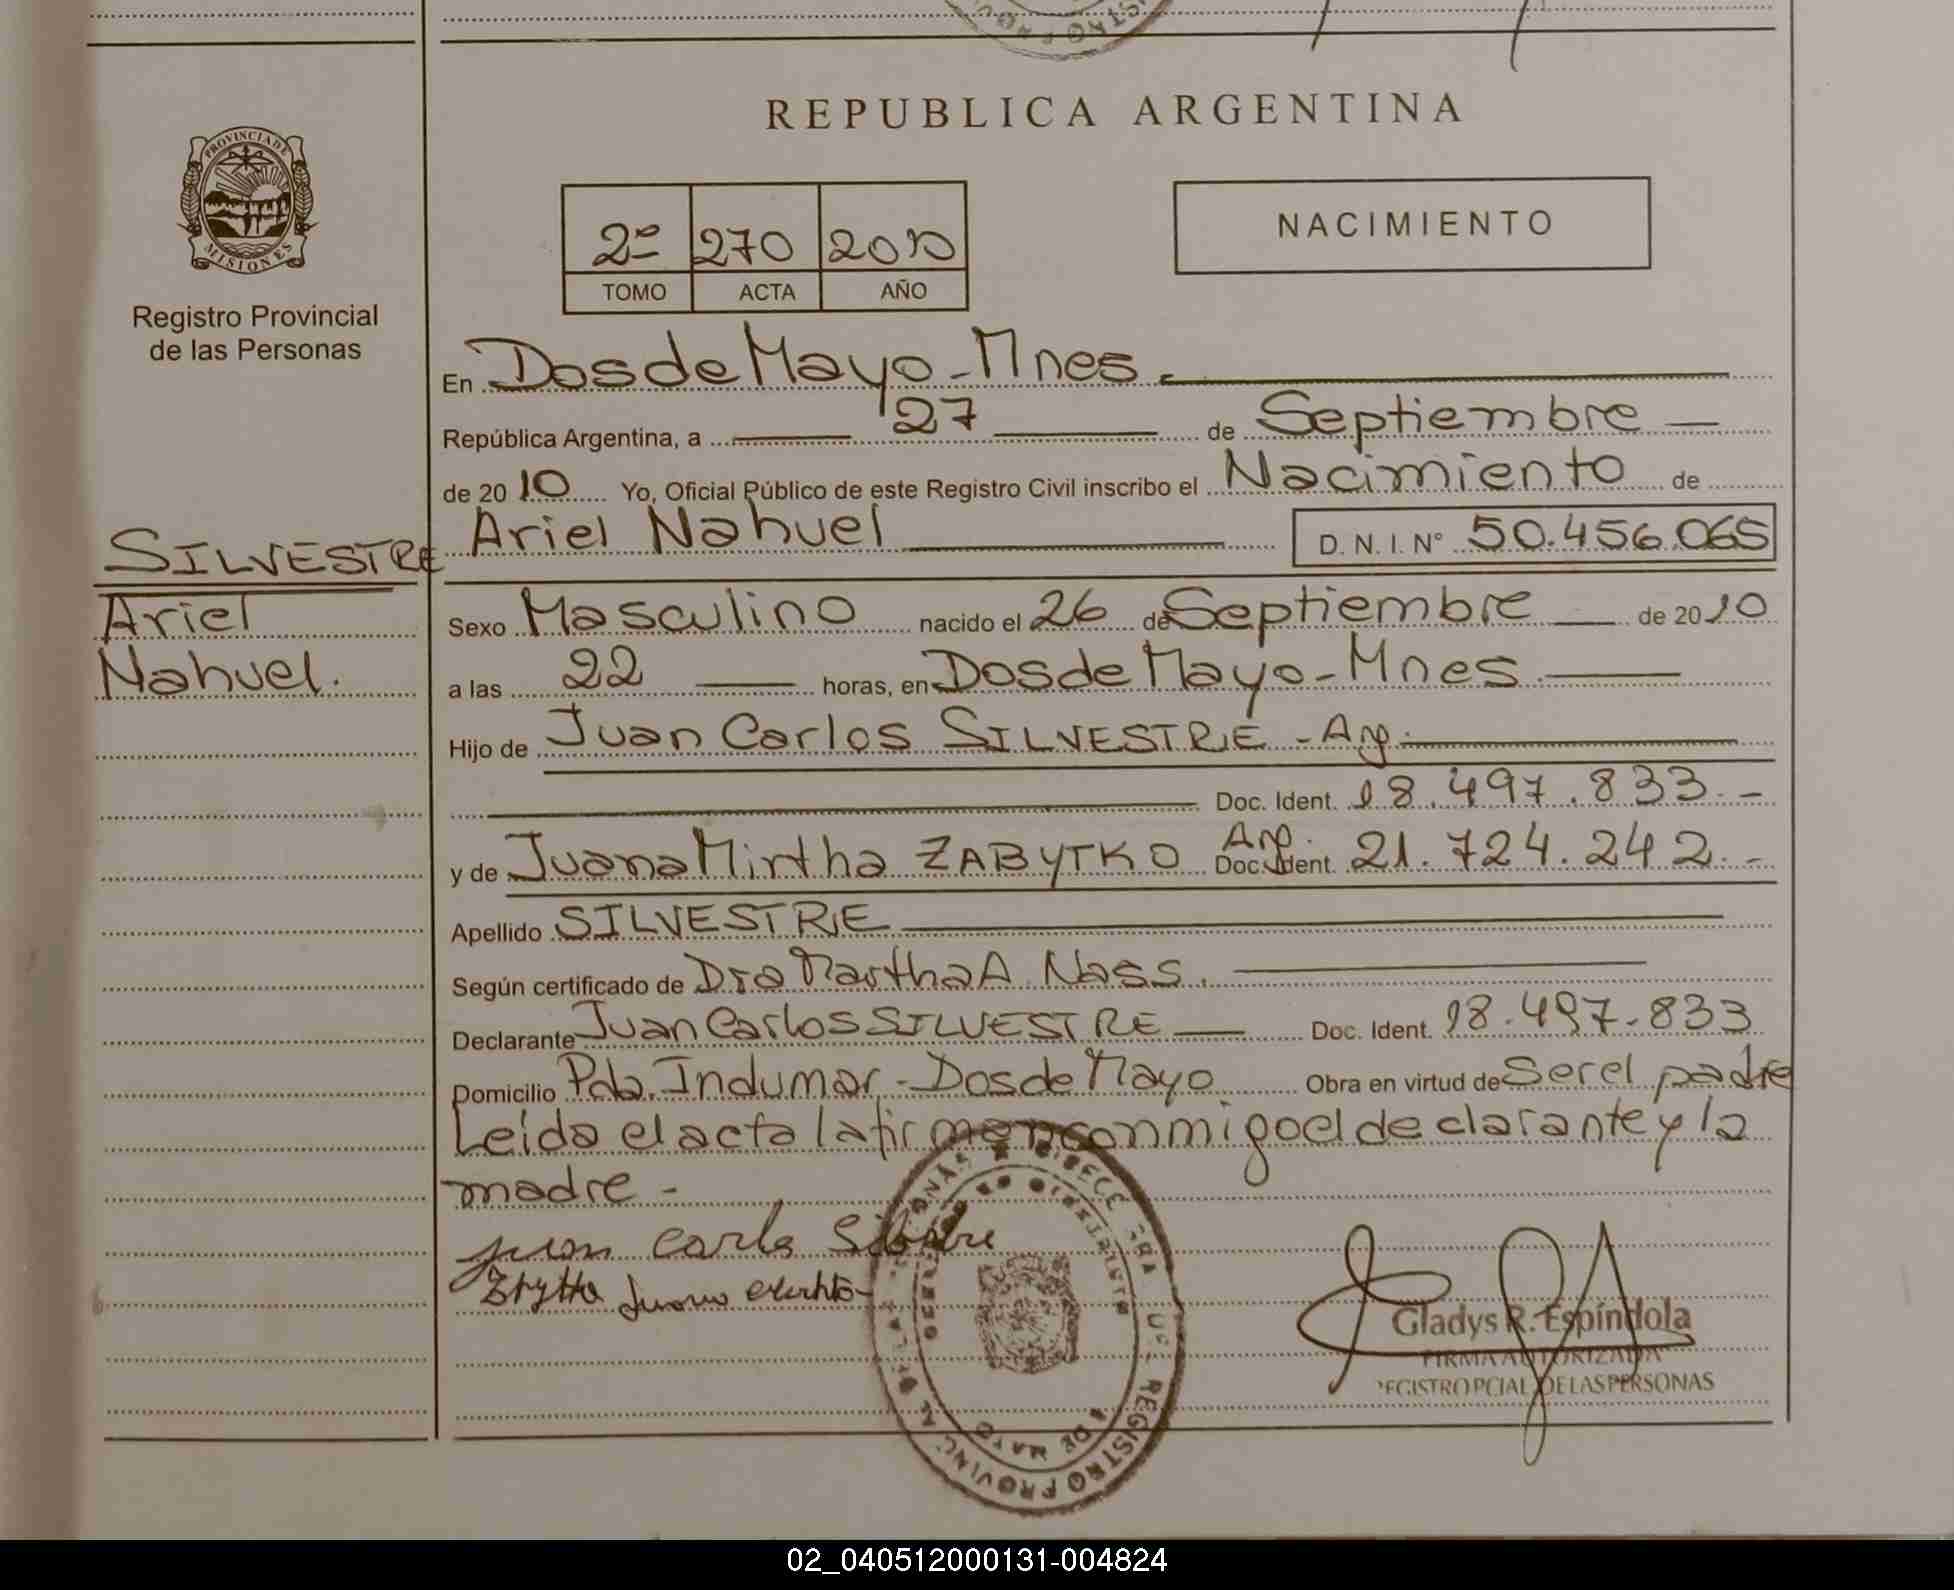 REPUBLICA ARGENTINA
PROVINCIA DE
MISIONES
Registro Provincial
de las Personas
NACIMIENTO
2º 270 2010
TOMO ACTA AÑO
En Dos de Mayo - Mnes
República Argentina, a 27 de Septiembre
de 2010 Yo, Oficial Público de este Registro Civil inscribo el Nacimiento de
Ariel Nahuel D. N. I. Nº 50.456.065
SILVESTRE
Ariel
Nahuel.
Sexo Masculino nacido el 26 de Septiembre de 2010
a las 22 horas, en Dos de Mayo - Mnes
Hijo de Juan Carlos SILVESTRE - Arg.
Doc. Ident. 18.497.833. -
y de Juana Mirtha ZABYTKO Arg. Doc. Ident. 21.724.242. -
Apellido SILVESTRE
Según certificado de Dra Martha A. Nass.
Declarante Juan Carlos SILVESTRE Doc. Ident. 18.497.833
Domicilio Pda. Indumar - Dos de Mayo Obra en virtud de Ser el padre
Leída el acta la firman conmigo el declarante y la
madre -
juan carlos
Gladys R. Espíndola
FIRMA AUTORIZADA
REGISTRO PCIAL DE LAS PERSONAS
REGISTRO PROVINCIAL DE LAS PERSONAS
DE MAYO
02_040512000131-004824